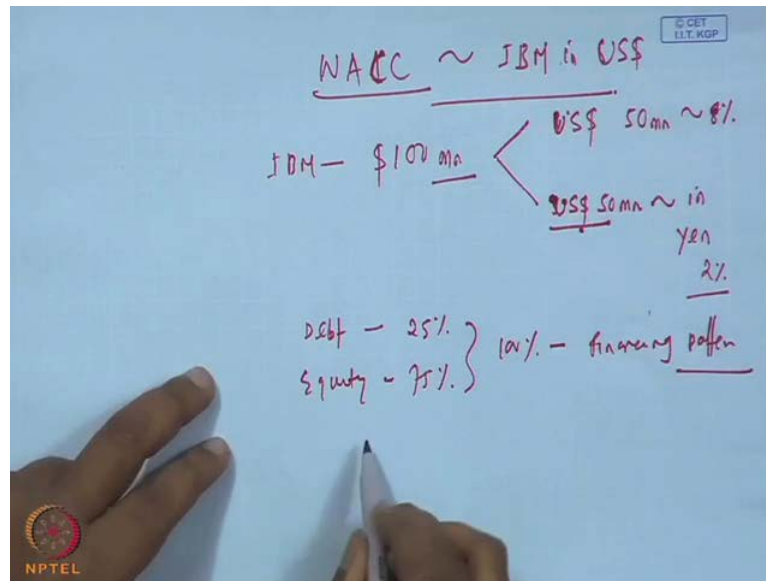 © CET
I.I.T. KGP
WACC ~ IBM in US$
IBM — $100 mn
US$ 50 mn ~ 8%.
US$ 50 mn ~ in
yen
2%
Debt — 25%.
Equity - 75%.
100%. — financing patten
NPTEL